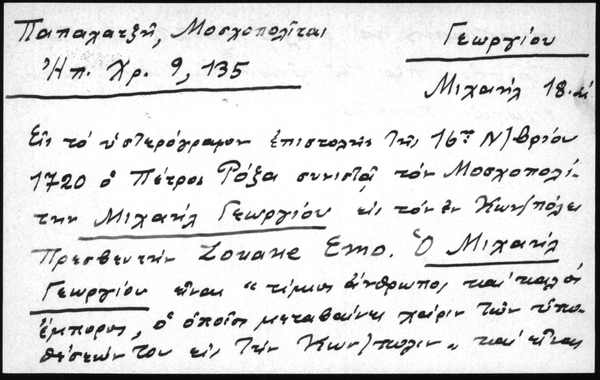 Παπαχατζῆ, Μοσχοπολῖται
Ἠπ. Χρ. 9, 135
Γεωργίου
Μιχαήλ 18.αἰ
Εἰς τό ὑστερόγραφον ἐπιστολῆς τῆς 16ης Ν/βρίου
1720 ὁ Πέτρος Ρόζα συνιστᾷ τόν Μοσχοπολί-
την Μιχαήλ Γεωργίου εἰς τόν ἐν Κων/πόλει
Πρεσβευτήν Zouane Emo. Ὁ Μιχαήλ
Γεωργίου εἶναι "τίμιος ἄνθρωπος καί καλός
ἔμπορος, ὁ ὁποῖος μεταβαίνει χάριν τῶν ὑπο-
θέσεών του εἰς τήν Κων/πολιν" καί εἶναι